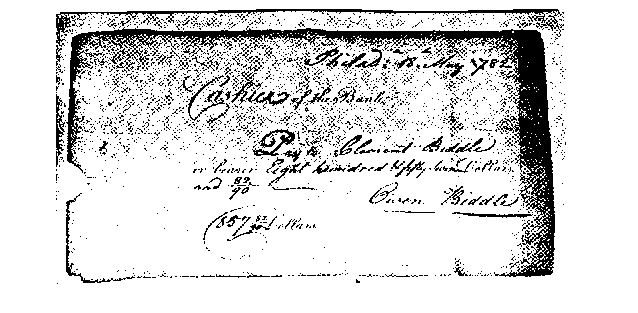 Philad.a 18 May 1782
Cashier of the Bank
Pay to Clement Biddle
or bearer Eight hundred & fifty seven Dollars
and 82/90
Owen Biddle
(857 82/90 Dollars